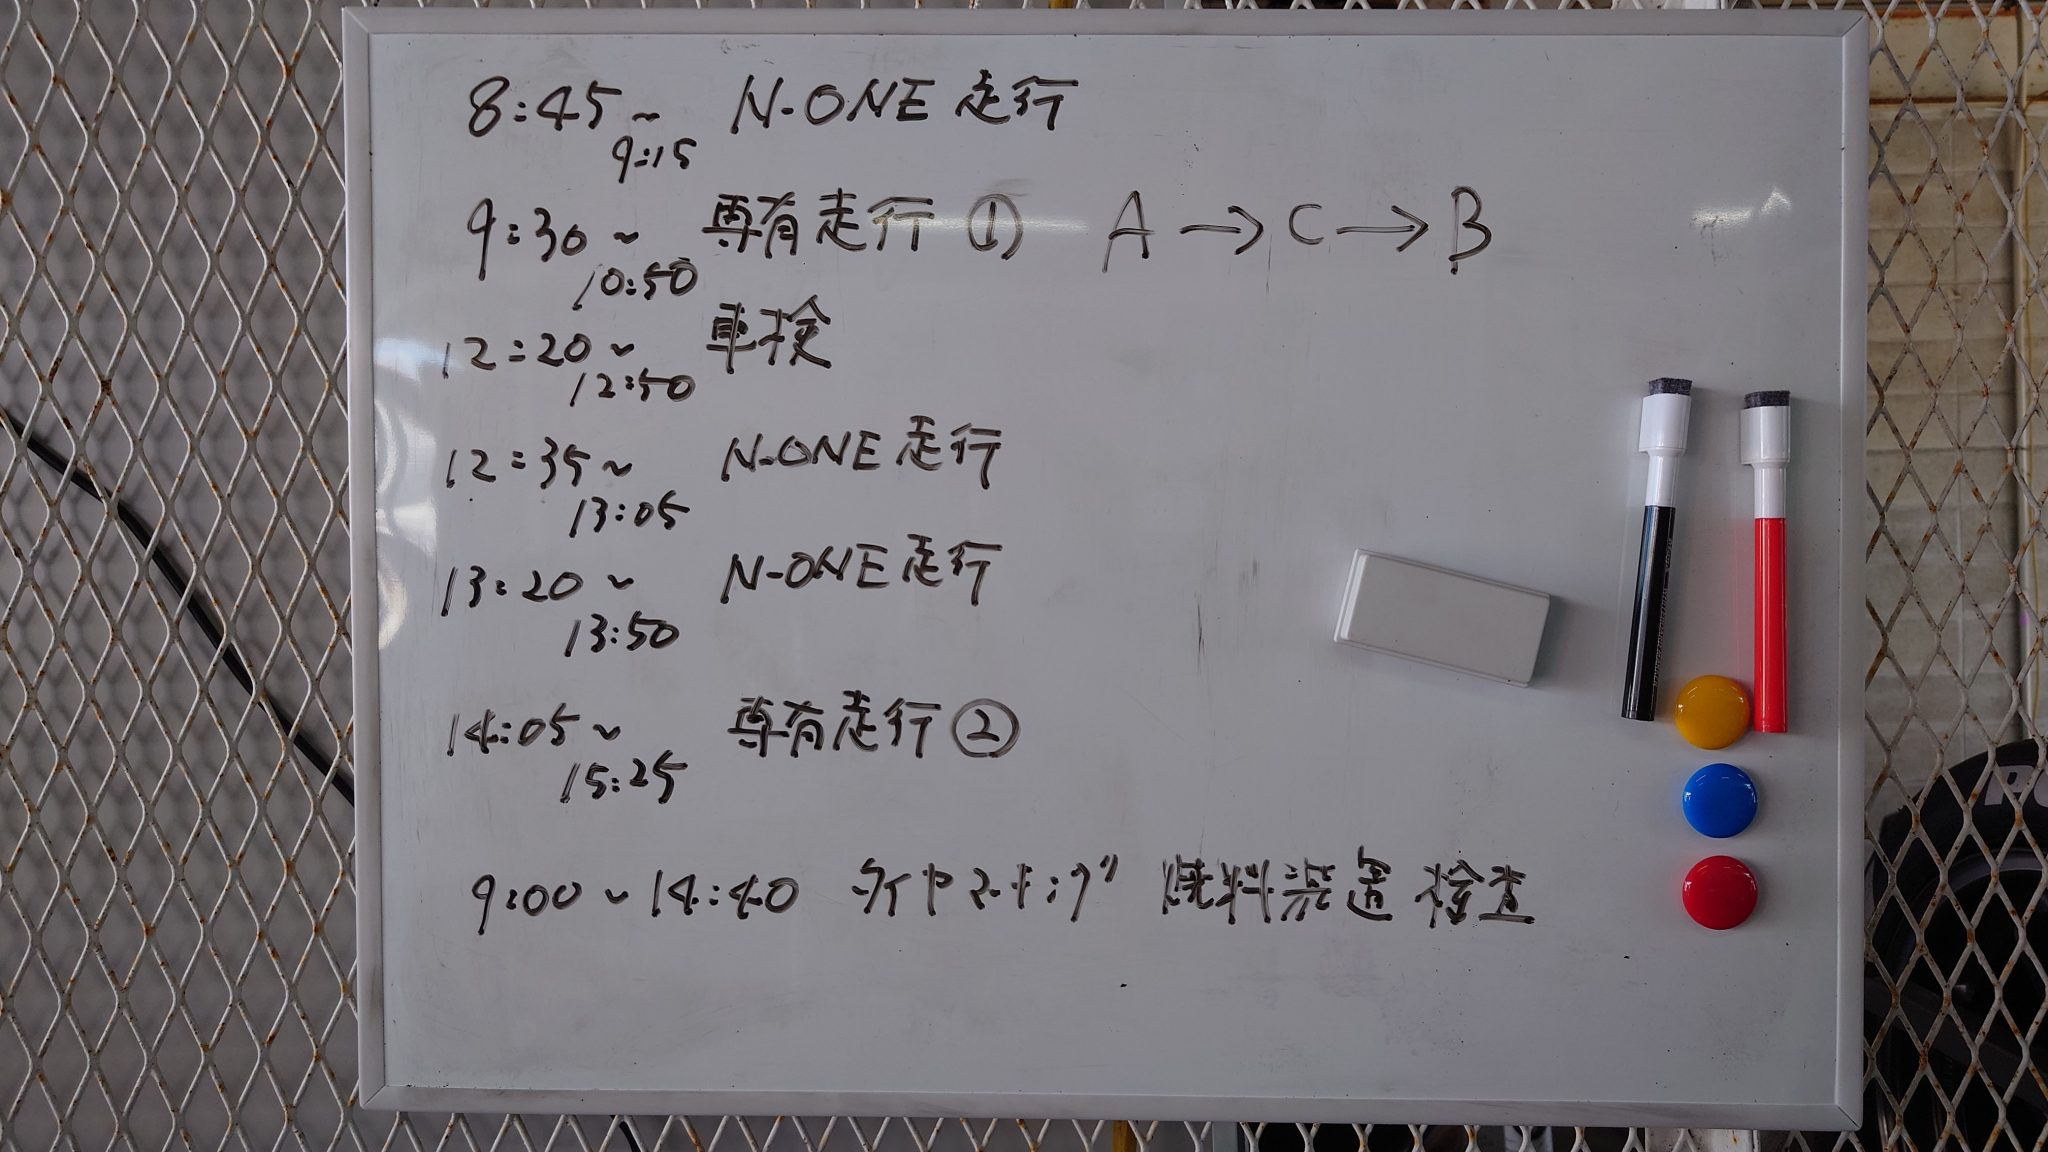 8:45~ N-ONE 走行
9:15
9:30~ 専有走行① A→C→B
10:50
12:20~ 車検
12:50
12:35~ N-ONE 走行
13:05
13:20~ N-ONE 走行
13:50
14:05~ 専有走行②
15:25
9:00~14:40 タイヤマーキング 燃料装置検査